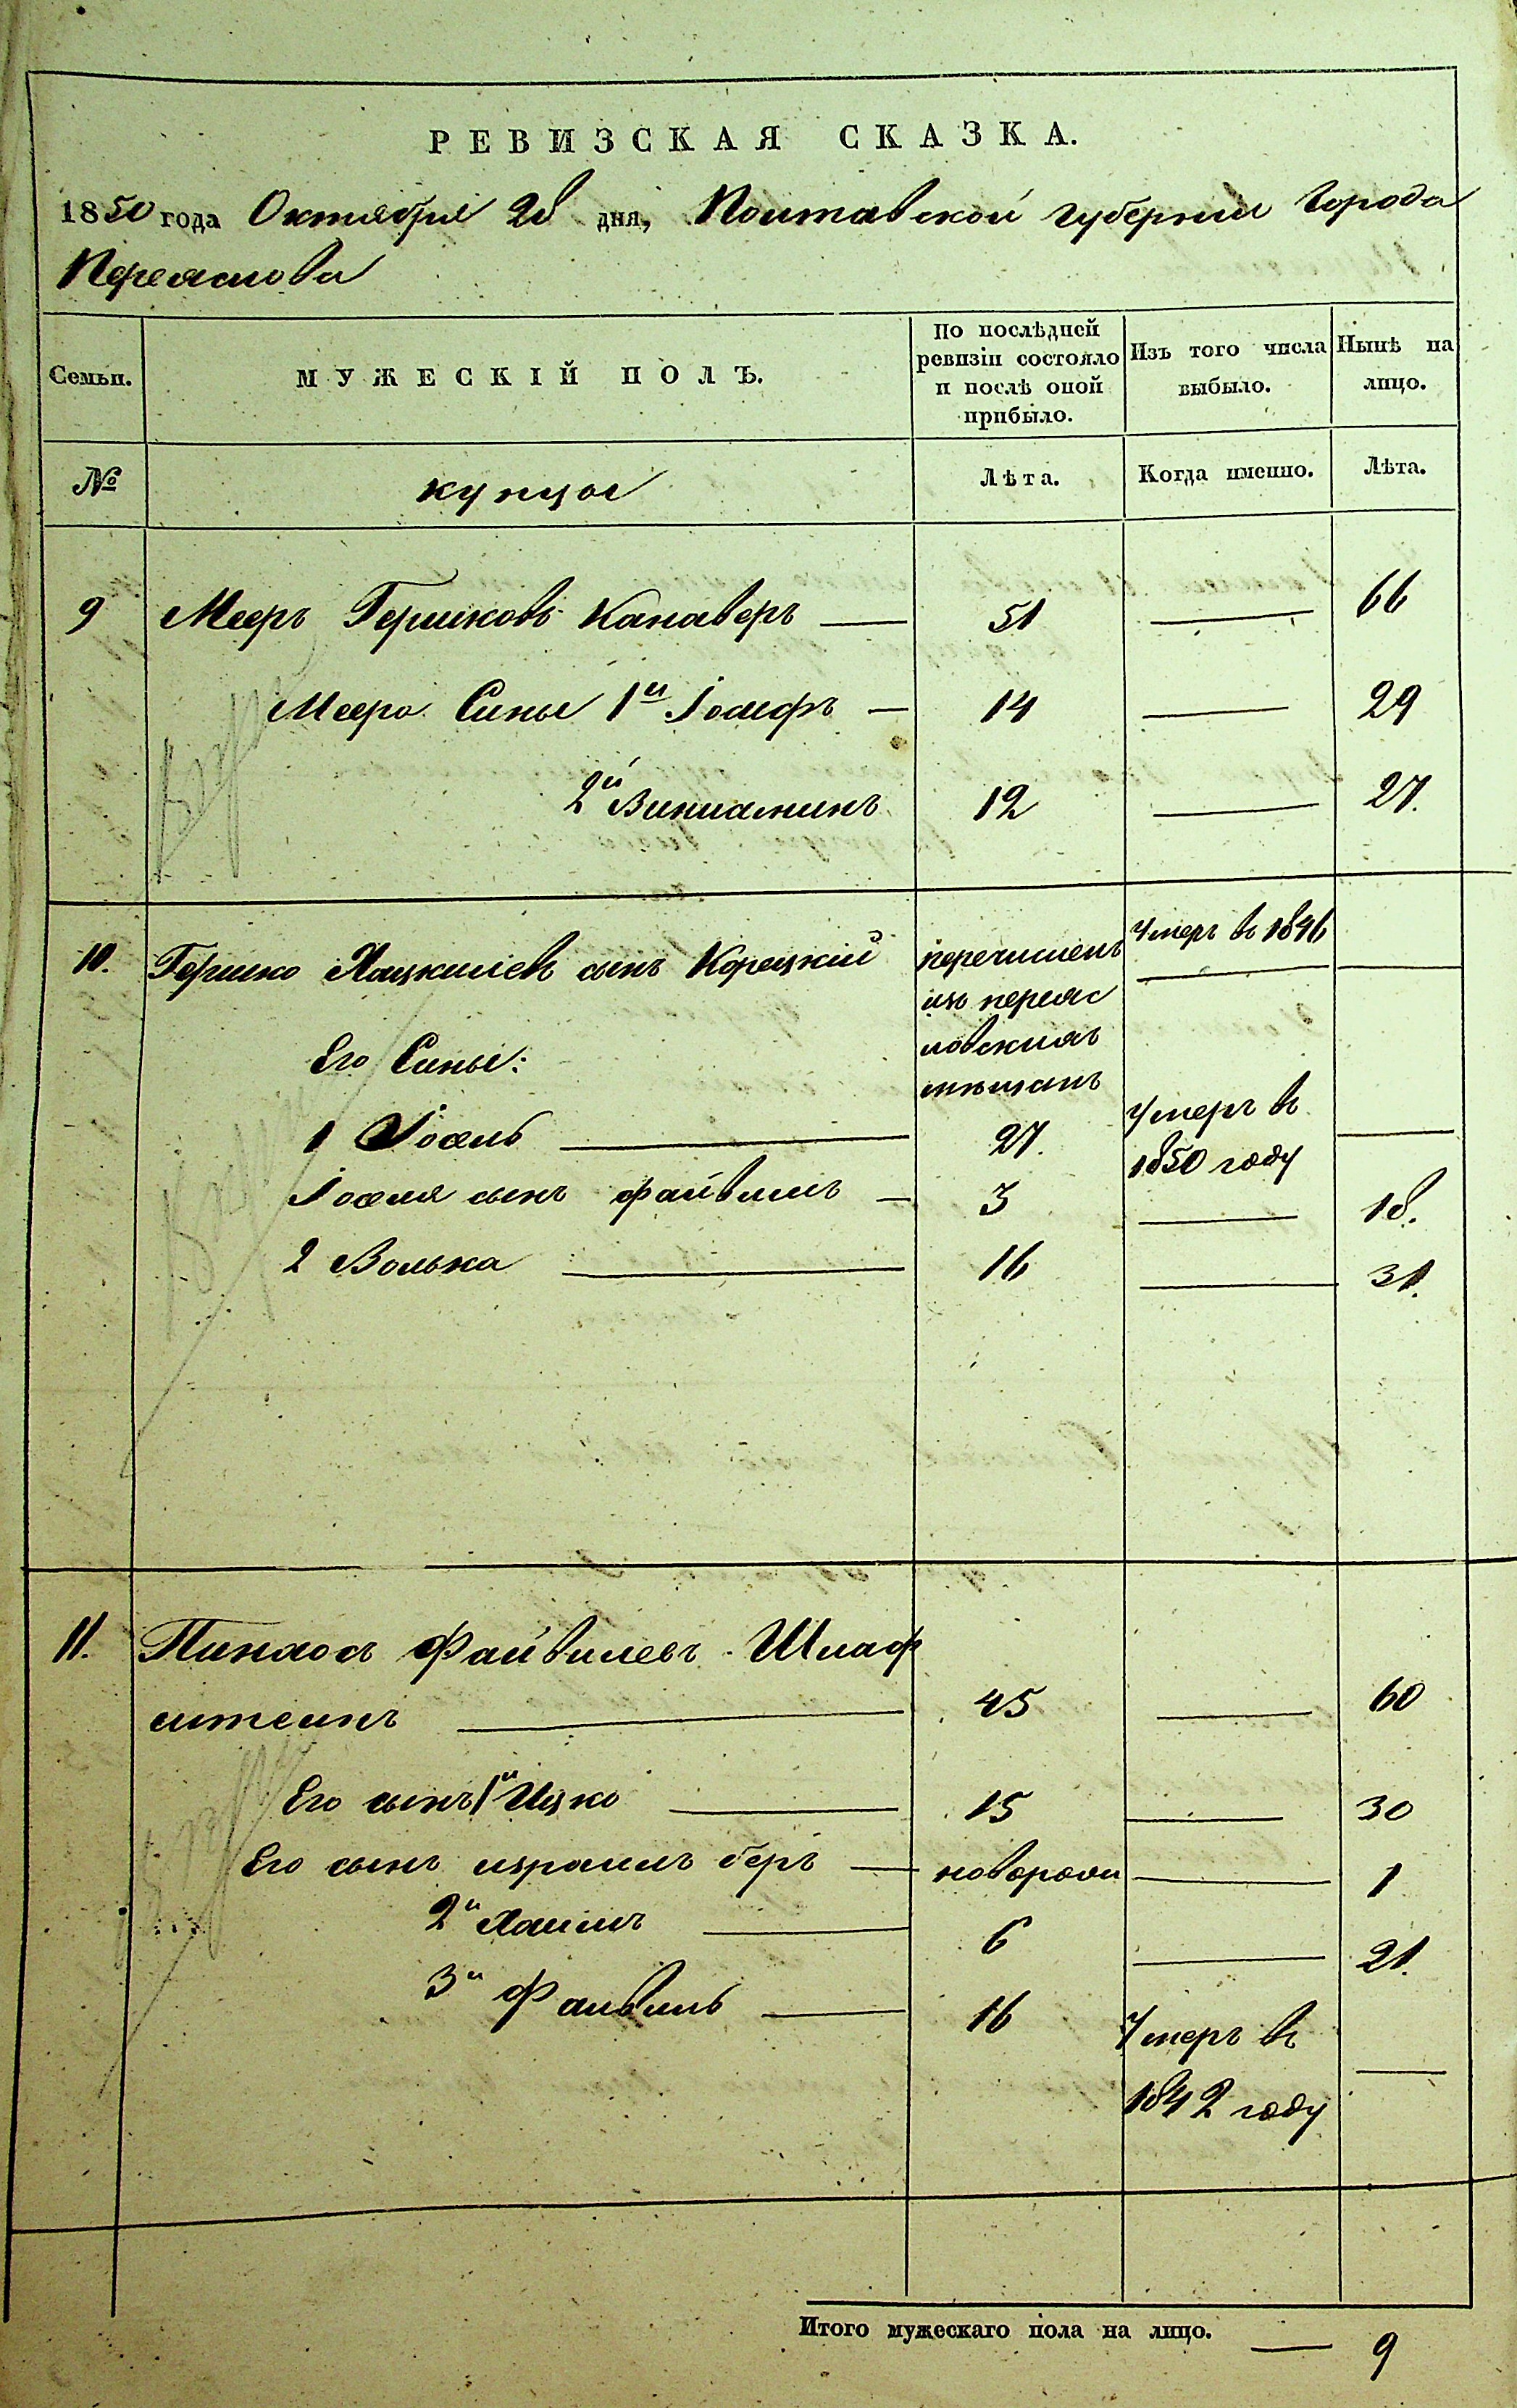 РЕВИЗСКАЯ СКАЗКА.
1850 года Октября 28 дня, Полтавской губернии города
Переяслова
Семьи.
МУЖЕСКІЙ ПОЛЪ.
По послѣдней
ревизіи состояло
и послѣ оной
прибыло.
Изъ того числа
выбыло.
Нынѣ на
лицо.
№
купцы
Лѣта.
Когда именно.
Лѣта.
9 Мееръ Гершковъ Канаверъ — 51 — 66
Меера Сины 1й Іосифъ — 14 — 29
2й Виниаминъ 12 — 27.
10. Гершко Хацкилевъ сынъ Корецкій перечисленъ Умеръ въ 1846
изъ переяс
ловскихъ
мѣщанъ
Его Сины:
1 Іосель — 27. Умеръ въ
1850 году —
Іоселя сынъ файвишъ — 3 — 18.
2 Волька — 16 — 31.
11. Пинхосъ Файвишевъ Шлаф
штеинъ — 45 — 60
Его сынъ 1й Ицко — 15 — 30
Его сынъ израиль беръ — новорожд — 1
2й Хаимъ — 6 — 21.
3й Фаивишъ — 16 Умеръ въ
1842 году —
Итого мужескаго пола на лицо. — 9